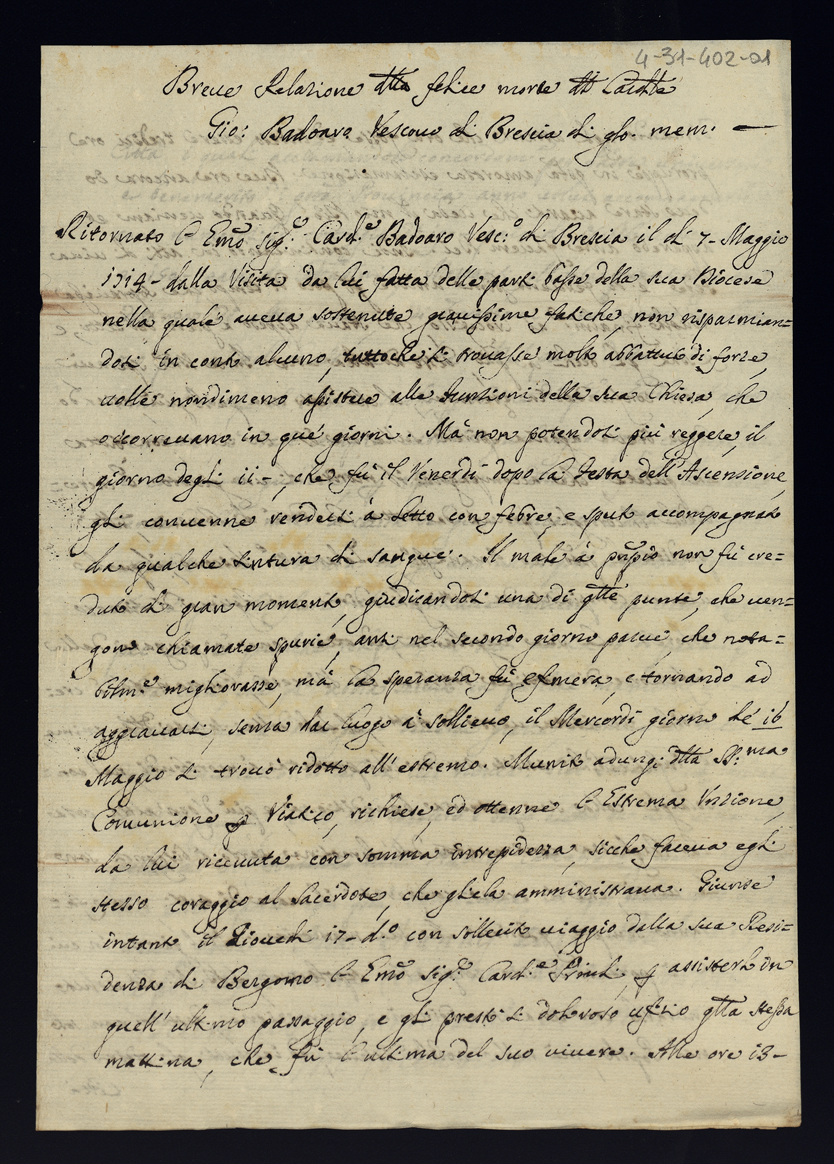 4-31-402-01
Breue Relatione dtta felice morte dt Cardle
Gio: Badoaro Vescouo di Brescia di glo. mem. —
Ritornato l'Emo Sigr. Carde Badoaro Vesco di Brescia il dì 7- Maggio
1714- dalla Visita da lui fatta delle parti basse della sua Diocese
nella quale aueua sostenute grauissime fatiche, non risparmian=
dosi in conto alcuno, tuttoche si trouasse molto abbattuto di forze,
uolle nondimeno assistere alle Funzioni della sua Chiesa, che
occorreuano in que' giorni. Mà non potendosi più reggere, il
giorno degli 11-, che fù il Venerdì dopo la Festa dell'Ascensione,
gli conuenne rendersi à letto con febre, e sputo accompagnato
da qualche tintura di sangue. Il male à pnpio non fù cre=
duto di gran momento, giudicandosi una di qtte punte, che uen=
gono chiamate spurie, anzi nel secondo giorno parue, che nota=
bilme migliorasse, mà la speranza fù efimera, e tornando ad
aggrauarsi, senza dar luogo à sollieuo, il Mercordì giorno de' 16
Maggio si trouò ridotto all'estremo. Munito adunq: dtta SS:ma
Comunione p Viatico, richiese, ed ottenne l'Estrema Unzione,
da lui riceuuta con somma intrepidezza, sicche faceua egli
stesso coraggio al Sacerdote, che gliela amministraua. Giunse
intanto il Giouedì 17- do con sollecito uiaggio dalla sua Resi=
denza di Bergomo l'Emo Sigr. Carde Priuli, p assisterlo in
quell'ultimo passaggio, e gli prestò il doloroso ufizio qtta stessa
mattina, che fù l'ultima del suo uiuere. Alle ore 13-